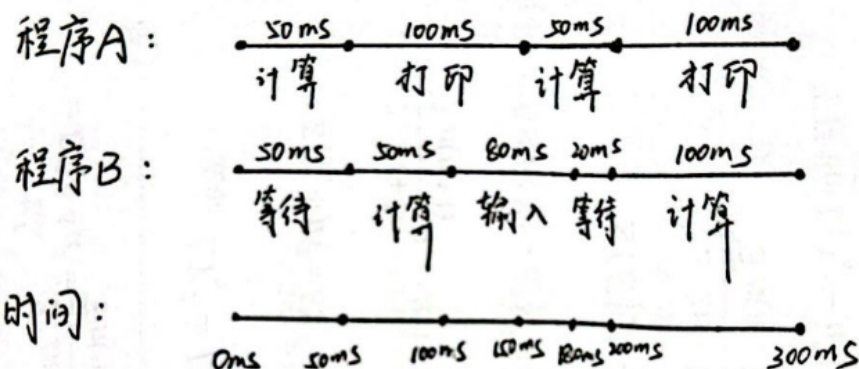 程序A: 50ms 100ms 50ms 100ms
计算 打印 计算 打印
程序B: 50ms 50ms 80ms 20ms 100ms
等待 计算 输入 等待 计算
时间:
0ms 50ms 100ms 150ms 180ms 200ms 300ms